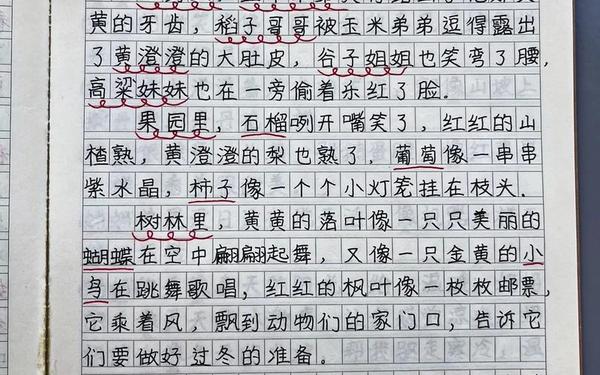 黄的牙齿,稻子哥哥被玉米弟弟逗得露出
了黄澄澄的大肚皮,谷子姐姐也笑弯了腰,
高粱妹妹也在一旁偷着乐红了脸.
果园里,石榴咧开嘴笑了,红红的山
楂熟,黄澄澄的梨也熟了,葡萄像一串串
紫水晶,柿子像一个个小灯笼挂在枝头.
树林里,黄黄的落叶像一只只美丽的
蝴蝶在空中翩翩起舞,又像一只金黄的小
鸟在跳舞歌唱,红红的枫叶像一枚枚邮票,
它乘着风,飘到动物们的家门口,告诉它
们要做好过冬的准备。